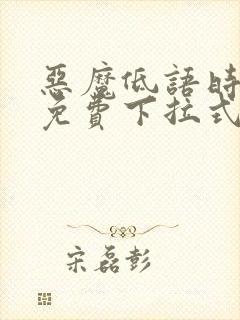 惡魔低語時
免費下拉式
宋磊彭